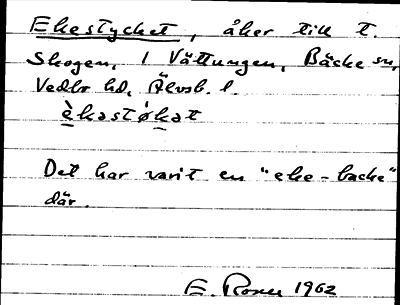 Ekestycket, åker till t.
Skogen, 1 Vättungen, Bäcke sn,
Vedbo hd, Älvsb. l.
èkəstỳkət
Det har varit en "eke-backe"
där.
E. Rosell 1962